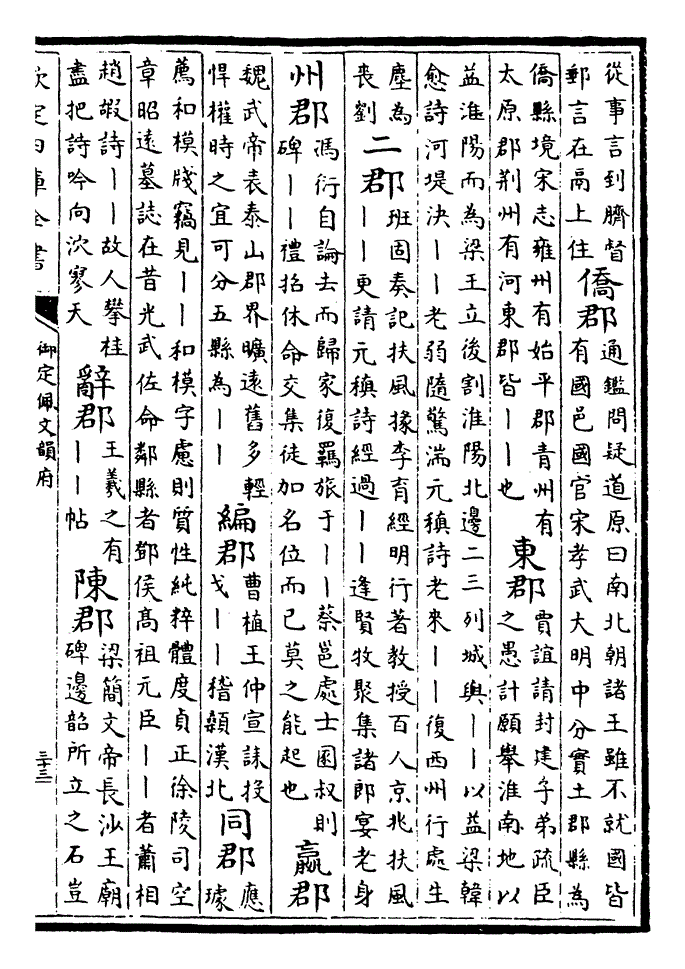 從事言到臍督
郵言在鬲上住
僑郡
通鑑問疑道原曰南北朝諸王雖不就國皆
有國邑國官宋孝武大明中分實土郡縣為
僑縣境宋志雍州有始平郡青州有
太原郡荆州有河東郡皆丨丨也
東郡
賈誼請封建子弟疏臣
之愚計願舉淮南地以
益淮陽而為梁王立後割淮陽北邊二三列城與丨丨以益梁韓
愈詩河堤決丨丨老弱隨驚湍元稹詩老來丨丨復西州行處生
塵為
喪劉
二郡
班固奏記扶風掾李育經明行著教授百人京兆扶風
丨丨更請元稹詩經過丨丨逢賢牧聚集諸郎宴老身
州郡
馮衍自論去而歸家復羈旅于丨丨蔡邕處士圂叔則
碑丨丨禮招休命交集徒加名位而已莫之能起也
嬴郡
魏武帝表泰山郡界曠遠舊多輕
悍權時之宜可分五縣為丨丨
編郡
曹植王仲宣誄投
戈丨丨稽顙漢北
同郡
應
璩
薦和模牋竊見丨丨和模字慮則質性純粹體度貞正徐陵司空
章昭遠墓誌在昔光武佐命鄰縣者鄧侯高祖元臣丨丨者蕭相
趙嘏詩丨丨故人攀桂
盡把詩吟向泬寥天
辭郡
王羲之有
丨丨帖
陳郡
梁簡文帝長沙王廟
碑邊韶所立之石豈
欽定四庫全書
御定佩文韻府
三十三